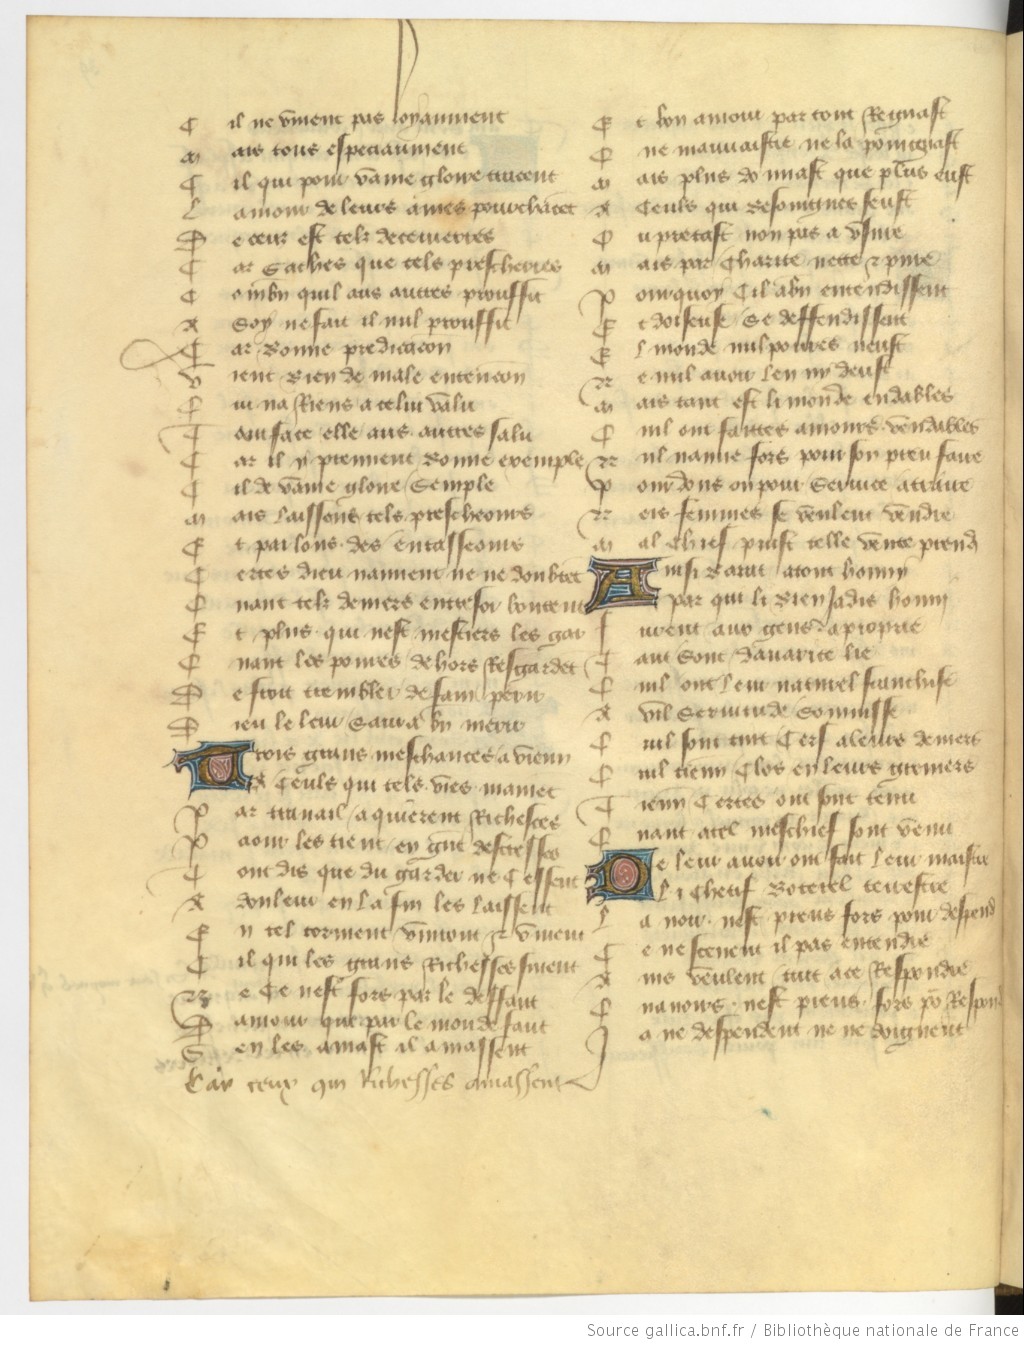 C il ne vivent pas loyaument
M ais tous especiaument
C il qui pour vaine gloire tracent
L amour de leurs ames pourchacet
D e ceur est telz deceveries
C ar Saches que tels prescheries
C ombn quil aus autres prouffit
A Soy ne fait il nul prouffit
C ar Bonne predicacon
V ient Bien de male entencon
Q ui na Riens a celui valu
T out face elle aus autres salu
C ar il y prennent Bonne exemple
C il de vaine gloire Semple
M ais laissons tels prescheours
E t parlons des entasseours
C ertes dieu naiment ne ne doubtet
Q uant telz deniers en tresor boutent
E t plus qui nest mestiers les gar
Q uant les povres dehors Resgardet
D e froit trembler de fain perir
D ieu le leur Saura by merir
Trois grans meschances avienn
A Ceuls qui tels vies mainet
P ar travail aquierent Richesces
P aour les tient en gnt destresses
T ant dis que du garder ne Cessent
A douleur en la fin les laissent
E n tel torment vivront et vivent
C il qui les grans Richesses sivent
N e Ce nest fors par le deffaut
D amour que par le monde faut
S en les amast il amassent
Car ceux qui Richesses amassent
E t bon amour par tout Regnast
Q ne mauvaistie ne la poingnast
M ais plus donnast que plus eust
A Ceuls qui Besoingnes seust
O u prestast non pas a usure
M ais par Charite nette et pure
P our quoy Cil a bn entendissent
E t doiseuse Se deffendissent
E l monde nul povres neust
N e nul avoir len ny deust
M ais tant est li monde endables
Q uil ont faittes amours vendables
N ul naime fors pour son preu faire
P our dons ou pour Service atraire
N eis femmes se veulent vendre
M al Chief puist telle vente prend
Ainsi Barat a tout honny
par qui li Bien jadis honni
F urent aux gens apropries
T ant Sont davarice lie
Q uil ont leur naturel franchise
A vil Servitude Sommise
Q uil sont tuit Cerf a leurs deniers
Q uil tienn Clos en leurs greniers
T ienn Certes ont sont tenu
Q uant a tel meschief sont venu
De leur avoir ont fait leur maistre
Li Chetif Boterel terrestre
L avoir nest preus fors pour despend
C e ne scevent il pas entendre
A ins veulent tuit a ce Respondre
Q navoirs nest preus fors po Respon
J a ne despendent ne ne doignent
Source gallica.bnf.fr / Bibliothèque nationale de France